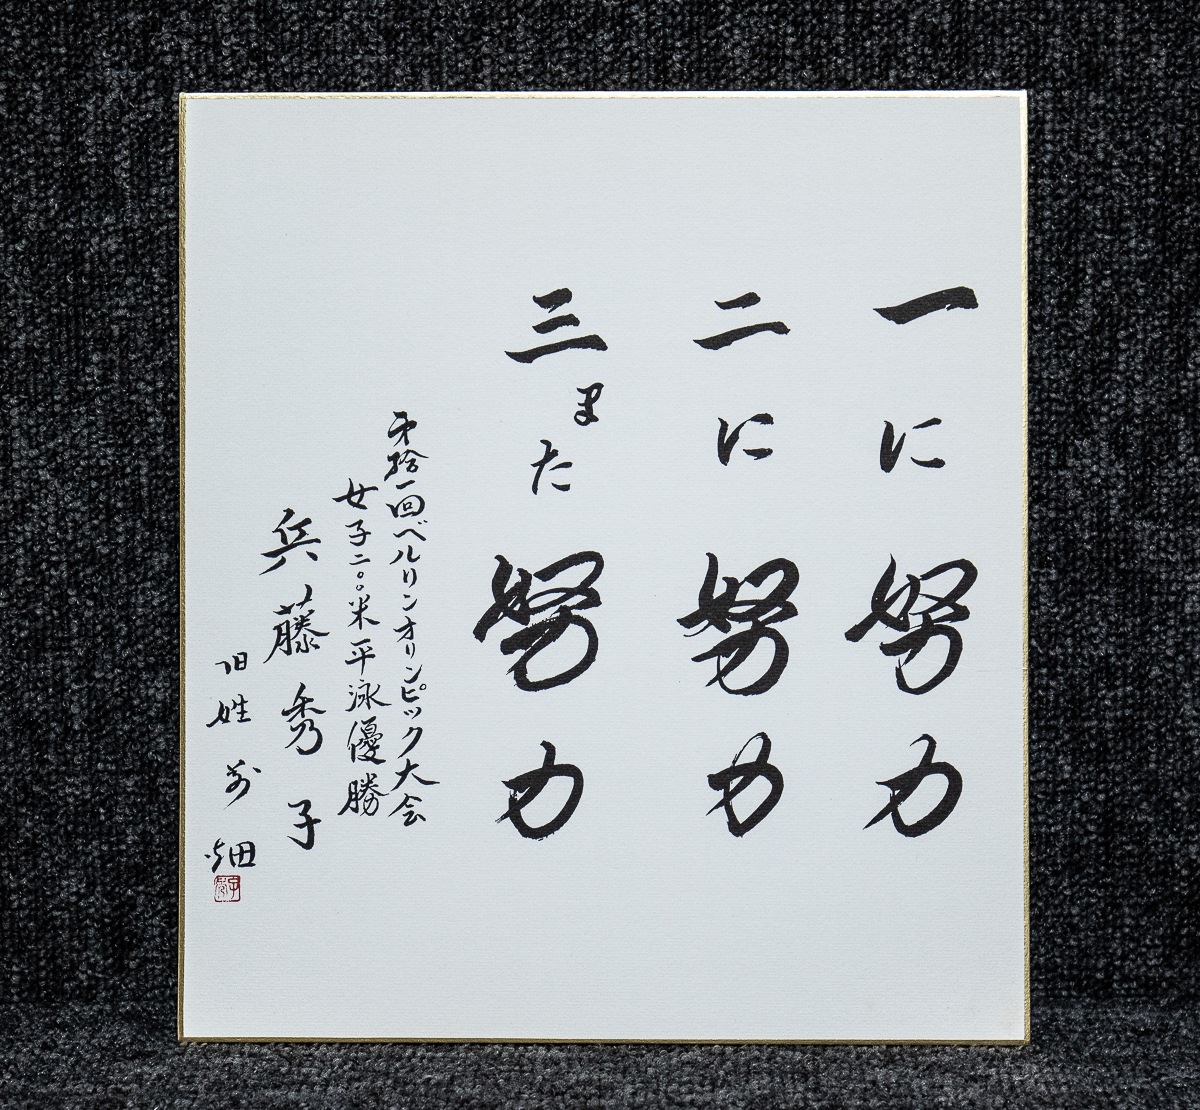 一に努力
二に努力
三また努力
第拾一回ベルリンオリンピック大会
女子二〇〇米平泳優勝
兵藤秀子
旧姓前畑